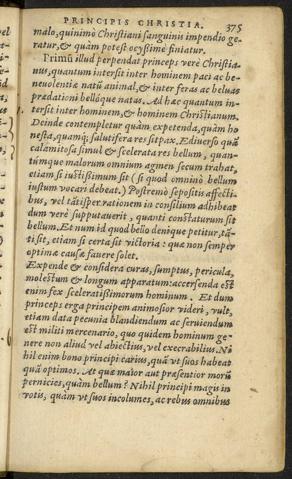 PRINCIPIS CHRISTIA. 375
malo, quinimò Christiani sanguinis impendio ge
ratur, & quàm potest ocyßimè finiatur.
Primũ illud perpendat princeps verè Christia-
nus, quantum intersit inter hominem paci ac be-
neuolentiæ natũ animal, & inter feras ac beluas
prædationi bellóque natas. Ad hæc quantum in-
tersit inter hominem, & hominem Christianum.
Deinde contempletur quàm expetenda, quàm ho
nesta, quamq; salutifera res sit pax. E diuerso quã
calamitosa simul & scelerata res bellum, quan-
túmque malorum omnium agmen secum trahat,
etiam si iustißimum sit (si quod omninò bellum
iustum vocari debeat.) Postremò sepositis affecti-
bus, vel tãtisper rationem in consilium adhibeat
dum verè supputauerit, quanti constaturum sit
bellum. Et num id quod bello denique petitur, tã-
ti sit, etiam si certa sit victoria: quæ non semper
optimæ causæ fauere solet.
Expende & considera curas, sumptus, pericula,
molestum & longum apparatum: accersenda est
enim fex sceleratißimorum hominum. Et dum
princeps erga principem animosior videri, vult,
etiam data pecunia blandiendum ac seruiendum
est militi mercenario, quo quidem hominum ge-
nere non aliud vel abiectius, vel execrabilius. Ni
hil enim bono principi carius, quã vt suos habeat
quã optimos. At quæ maior aut præsentior morũ
pernicies, quàm bellum? Nihil principi magis in
votis, quàm vt suos incolumes, ac rebus omnibus